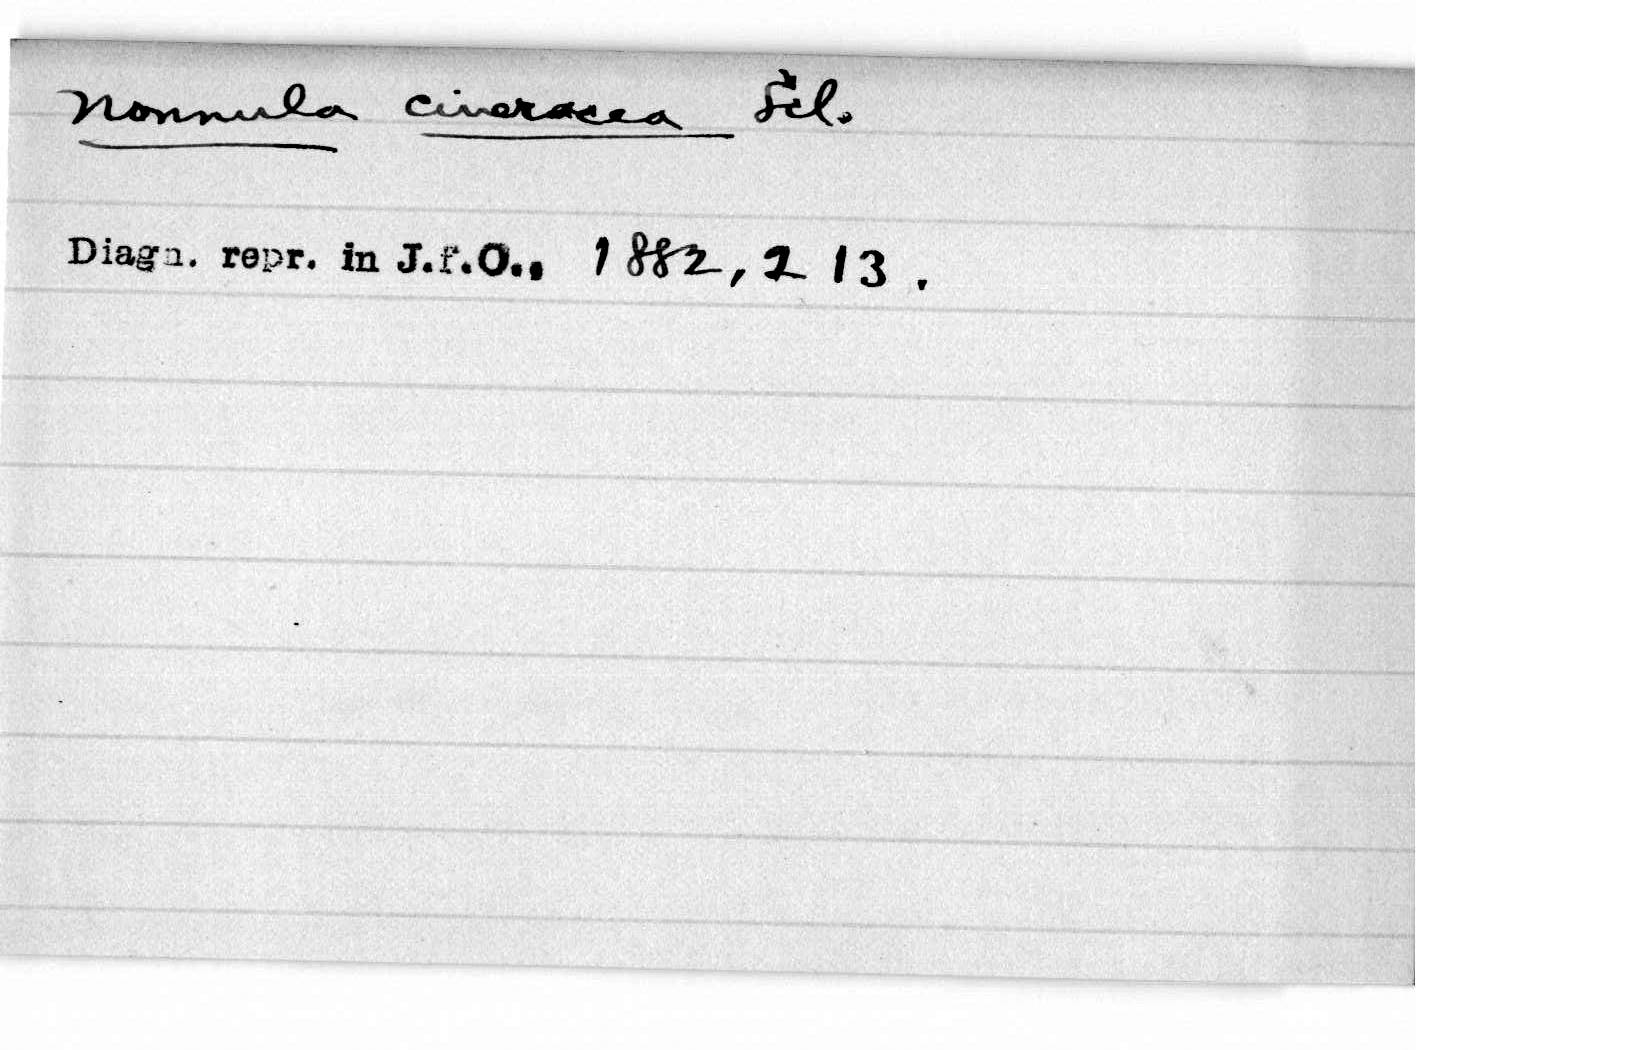 Nonnula cineracea Scl.
Diagn. repr. in J.f.O., 1882, 213.